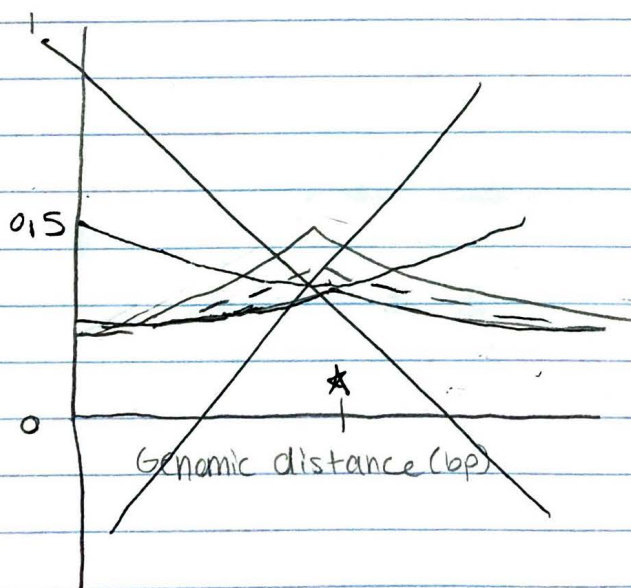 1
0,5
0
Genomic distance (bp)